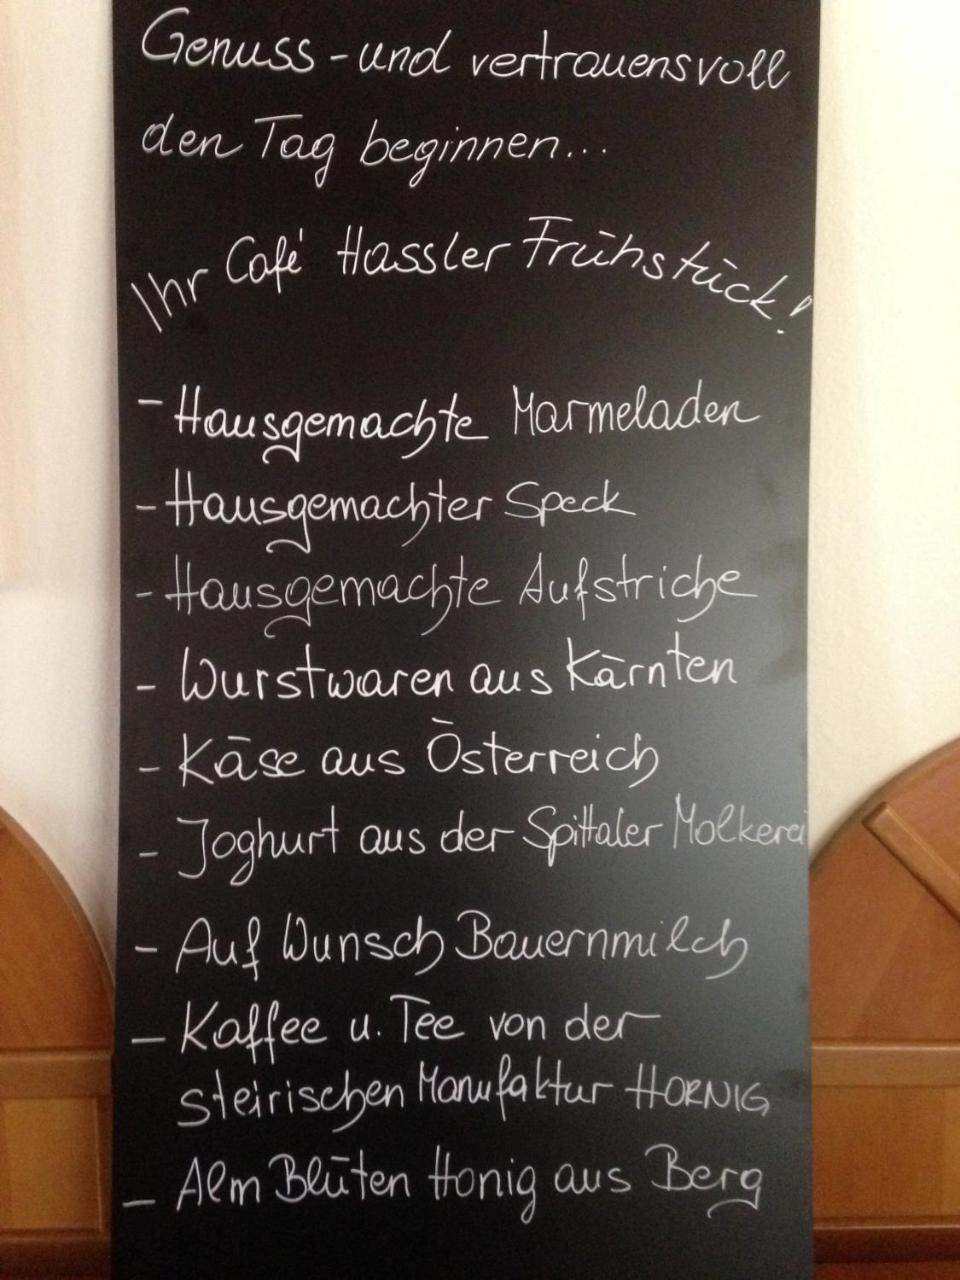 Genuss-und vertrauensvoll
den Tag beginnen...
Ihr Café Hassler Frühstück!
- Hausgemachte Marmeladen
- Hausgemachter Speck
- Hausgemachte Aufstriche
- Wurstwaren aus Kärnten
- Käse aus Österreich
- Joghurt aus der Spittaler Molkerei
- Auf Wunsch Bauernmilch
- Kaffee u. Tee von der
steirischen Manufaktur HORNIG
- Alm Blüten Honig aus Berg